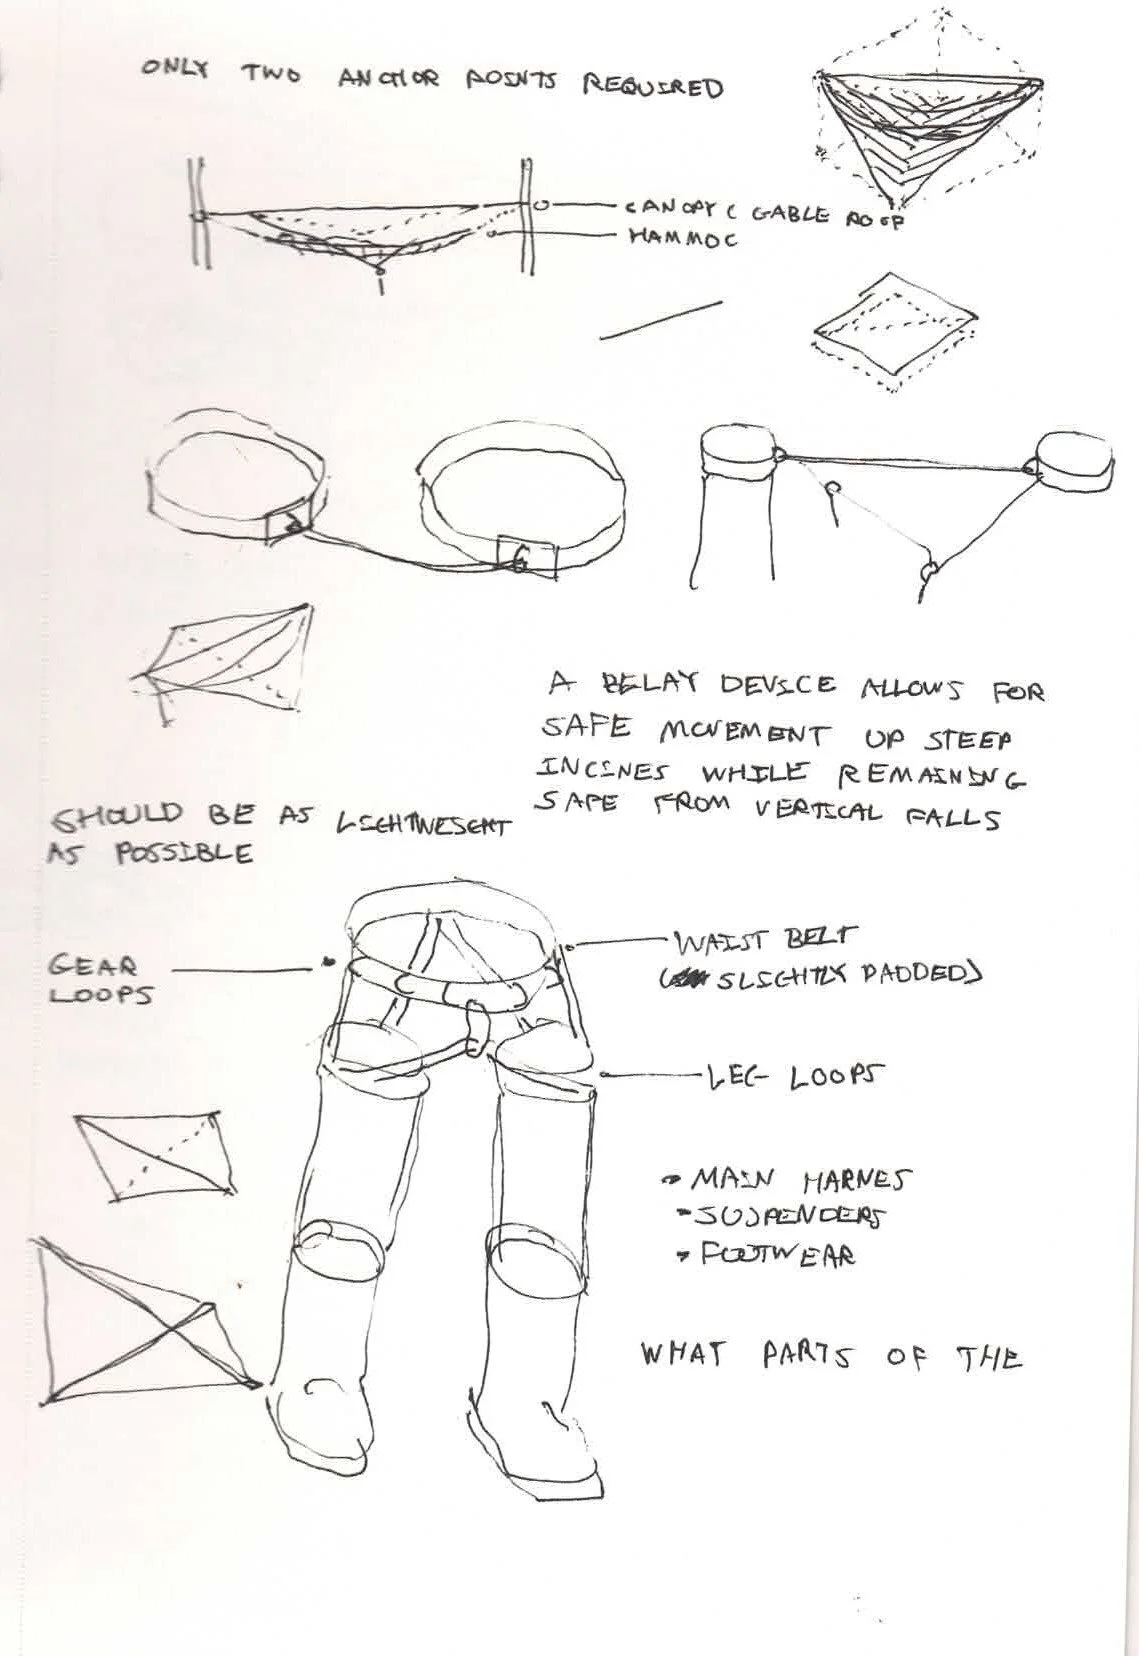 ONLY TWO ANCHOR POINTS REQUIRED
CANOPY ( GABLE ROOF
HAMMOC
A BELAY DEVICE ALLOWS FOR
SAFE MOVEMENT UP STEEP
INCINES WHILE REMAINING
SAFE FROM VERTICAL FALLS
SHOULD BE AS LIGHTWEIGHT
AS POSSIBLE
WAIST BELT
( SLIGHTLY PADDED)
GEAR
LOOPS
LEG LOOPS
• MAIN HARNES
• SUSPENDERS
• FOOTWEAR
WHAT PARTS OF THE